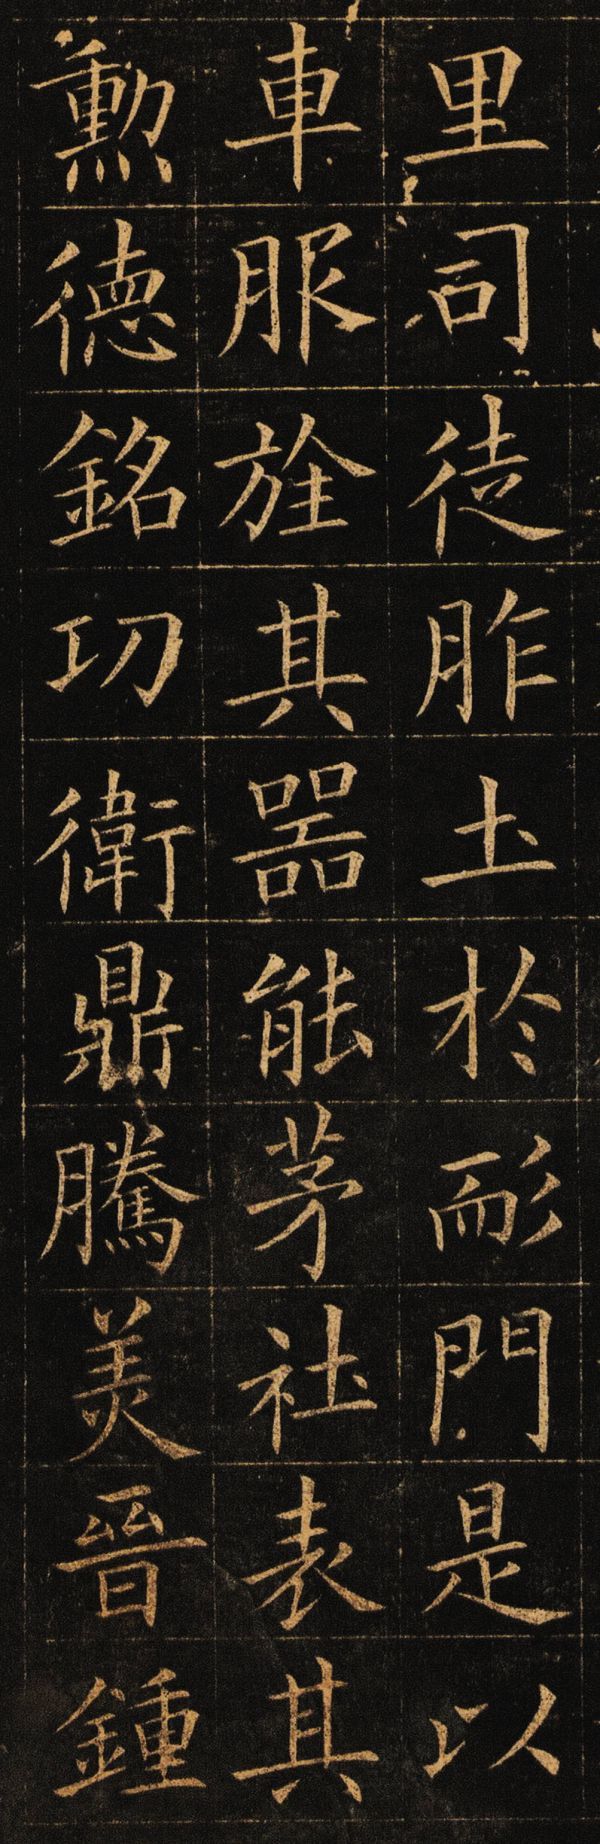 里司徒胙土於耏門是以
車服旌其器能茅社表其
勲徳銘功衛鼎騰美晉鍾